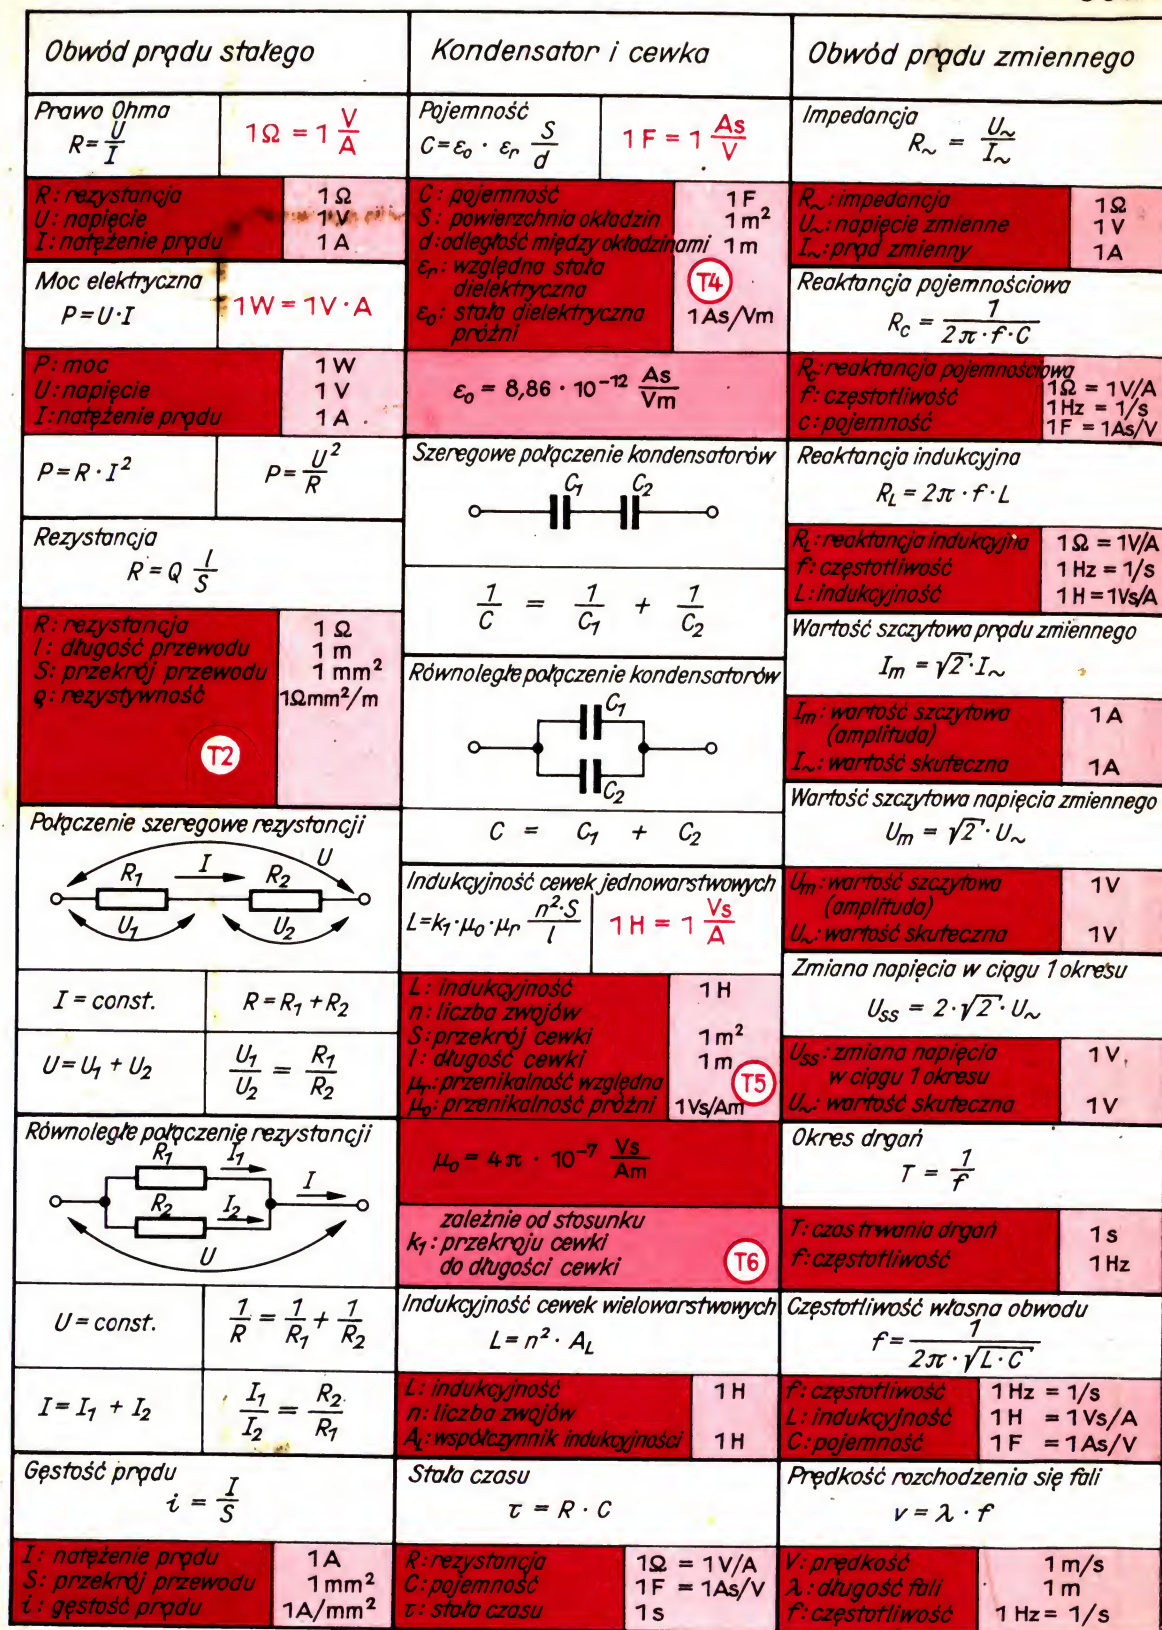 Obwód prądu stałego
Prawo Ohma
R = U/I
1Ω = 1 V/A
R: rezystancja 1Ω
U: napięcie 1V
I: natężenie prądu 1A
Moc elektryczna
P = U·I
1W = 1V·A
P: moc 1W
U: napięcie 1V
I: natężenie prądu 1A
P = R · I²
P = U²/R
Rezystancja
R = Q l/S
R: rezystancja 1Ω
l: długość przewodu 1m
S: przekrój przewodu 1mm²
ϱ: rezystywność 1Ωmm²/m
T2
Połączenie szeregowe rezystancji
U
R₁ I R₂
U₁ U₂
I = const.
R = R₁ + R₂
U = U₁ + U₂
U₁/U₂ = R₁/R₂
Równoległe połączenie rezystancji
R₁ I₁
I
R₂ I₂
U
U = const.
1/R = 1/R₁ + 1/R₂
I = I₁ + I₂
I₁/I₂ = R₂/R₁
Gęstość prądu
i = I/S
I: natężenie prądu 1A
S: przekrój przewodu 1mm²
i: gęstość prądu 1A/mm²
Kondensator i cewka
Pojemność
C = ε₀ · εᵣ S/d
1F = 1 As/V
C: pojemność 1F
S: powierzchnia okładzin 1m²
d: odległość między okładzinami 1m
εᵣ: względna stała
dielektryczna
T4
ε₀: stała dielektryczna 1As/Vm
próżni
ε₀ = 8,86 · 10⁻¹² As/Vm
Szeregowe połączenie kondensatorów
C₁ C₂
1/C = 1/C₁ + 1/C₂
Równoległe połączenie kondensatorów
C₁
C₂
C = C₁ + C₂
Indukcyjność cewek jednowarstwowych
L = k₁·μ₀·μᵣ n²·S/l
1H = 1 Vs/A
L: indukcyjność 1H
n: liczba zwojów
S: przekrój cewki 1m²
l: długość cewki 1m
μᵣ: przenikalność względna
T5
μ₀: przenikalność próżni 1Vs/Am
μ₀ = 4π · 10⁻⁷ Vs/Am
zależnie od stosunku
k₁: przekroju cewki
do długości cewki
T6
Indukcyjność cewek wielowarstwowych
L = n² · A_L
L: indukcyjność 1H
n: liczba zwojów
A_L: współczynnik indukcyjności 1H
Stała czasu
τ = R · C
R: rezystancja 1Ω = 1V/A
C: pojemność 1F = 1As/V
τ: stała czasu 1s
Obwód prądu zmiennego
Impedancja
R∼ = U∼/I∼
R∼: impedancja 1Ω
U∼: napięcie zmienne 1V
I∼: prąd zmienny 1A
Reaktancja pojemnościowa
R_C = 1/(2π·f·C)
R_C: reaktancja pojemnościowa
1Ω = 1V/A
f: częstotliwość 1Hz = 1/s
c: pojemność 1F = 1As/V
Reaktancja indukcyjna
R_L = 2π · f · L
R_L: reaktancja indukcyjna 1Ω = 1V/A
f: częstotliwość 1Hz = 1/s
L: indukcyjność 1H = 1Vs/A
Wartość szczytowa prądu zmiennego
I_m = √2 · I∼
I_m: wartość szczytowa 1A
(amplituda)
I∼: wartość skuteczna 1A
Wartość szczytowa napięcia zmiennego
U_m = √2 · U∼
U_m: wartość szczytowa 1V
(amplituda)
U∼: wartość skuteczna 1V
Zmiana napięcia w ciągu 1 okresu
U_ss = 2·√2 · U∼
U_ss: zmiana napięcia 1V
w ciągu 1 okresu
U∼: wartość skuteczna 1V
Okres drgań
T = 1/f
T: czas trwania drgań 1s
f: częstotliwość 1Hz
Częstotliwość własna obwodu
f = 1/(2π·√(L·C))
f: częstotliwość 1Hz = 1/s
L: indukcyjność 1H = 1Vs/A
C: pojemność 1F = 1As/V
Prędkość rozchodzenia się fali
v = λ · f
V: prędkość 1m/s
λ: długość fali 1m
f: częstotliwość 1Hz = 1/s